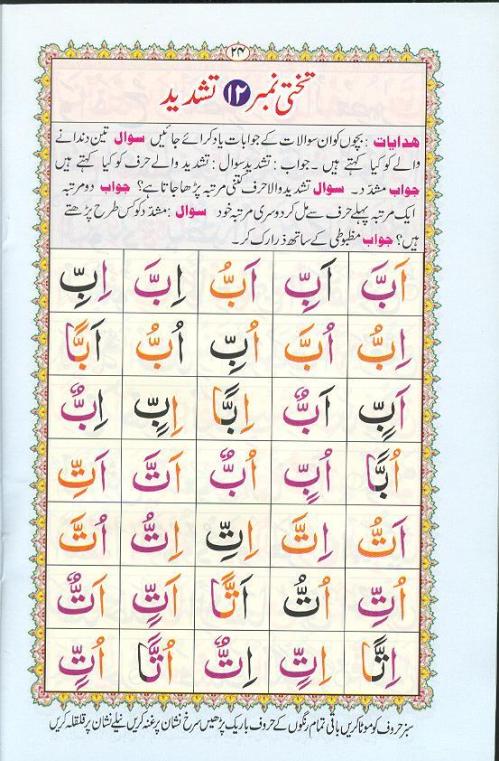 ۲۴
تختی نمبر ۱۲ تشدید
هدایات : بچوں کو ان سوالات کے جوابات یاد کرائے جائیں سوال تین دندانے
والے کو کیا کہتے ہیں ۔ جواب : تشدید سوال : تشدید والے حرف کو کیا کہتے ہیں
جواب مشدّد ۔ سوال تشدید والا حرف کتنی مرتبہ پڑھا جاتا ہے؟ جواب دو مرتبہ
ایک مرتبہ پہلے حرف سے مل کر دوسری مرتبہ خود سوال : مشدّد کو کس طرح پڑھتے
ہیں؟ جواب مظبوطی کے ساتھ ذرا رک کر۔
اَبَّ اَبِّ اَبُّ اِبَّ اِبِّ
اِبُّ اُبَّ اُبِّ اُبُّ اَبًّا
اَبٍّ اَبٌّ اِبًّا اِبٍّ اِبٌّ
اُبًّا اُبٍّ اُبٌّ اَتَّ اَتِّ
اَتُّ اِتَّ اِتِّ اِتُّ اُتَّ
اُتِّ اُتُّ اَتًّا اَتٍّ اَتٌّ
اِتًّا اِتٍّ اِتٌّ اُتًّا اُتٍّ
سبز حروف کو موٹا کریں باقی تمام رنگوں کے حروف باریک پڑھیں سرخ نشان پر غنہ کریں نیلے نشان پر قلقلہ کریں